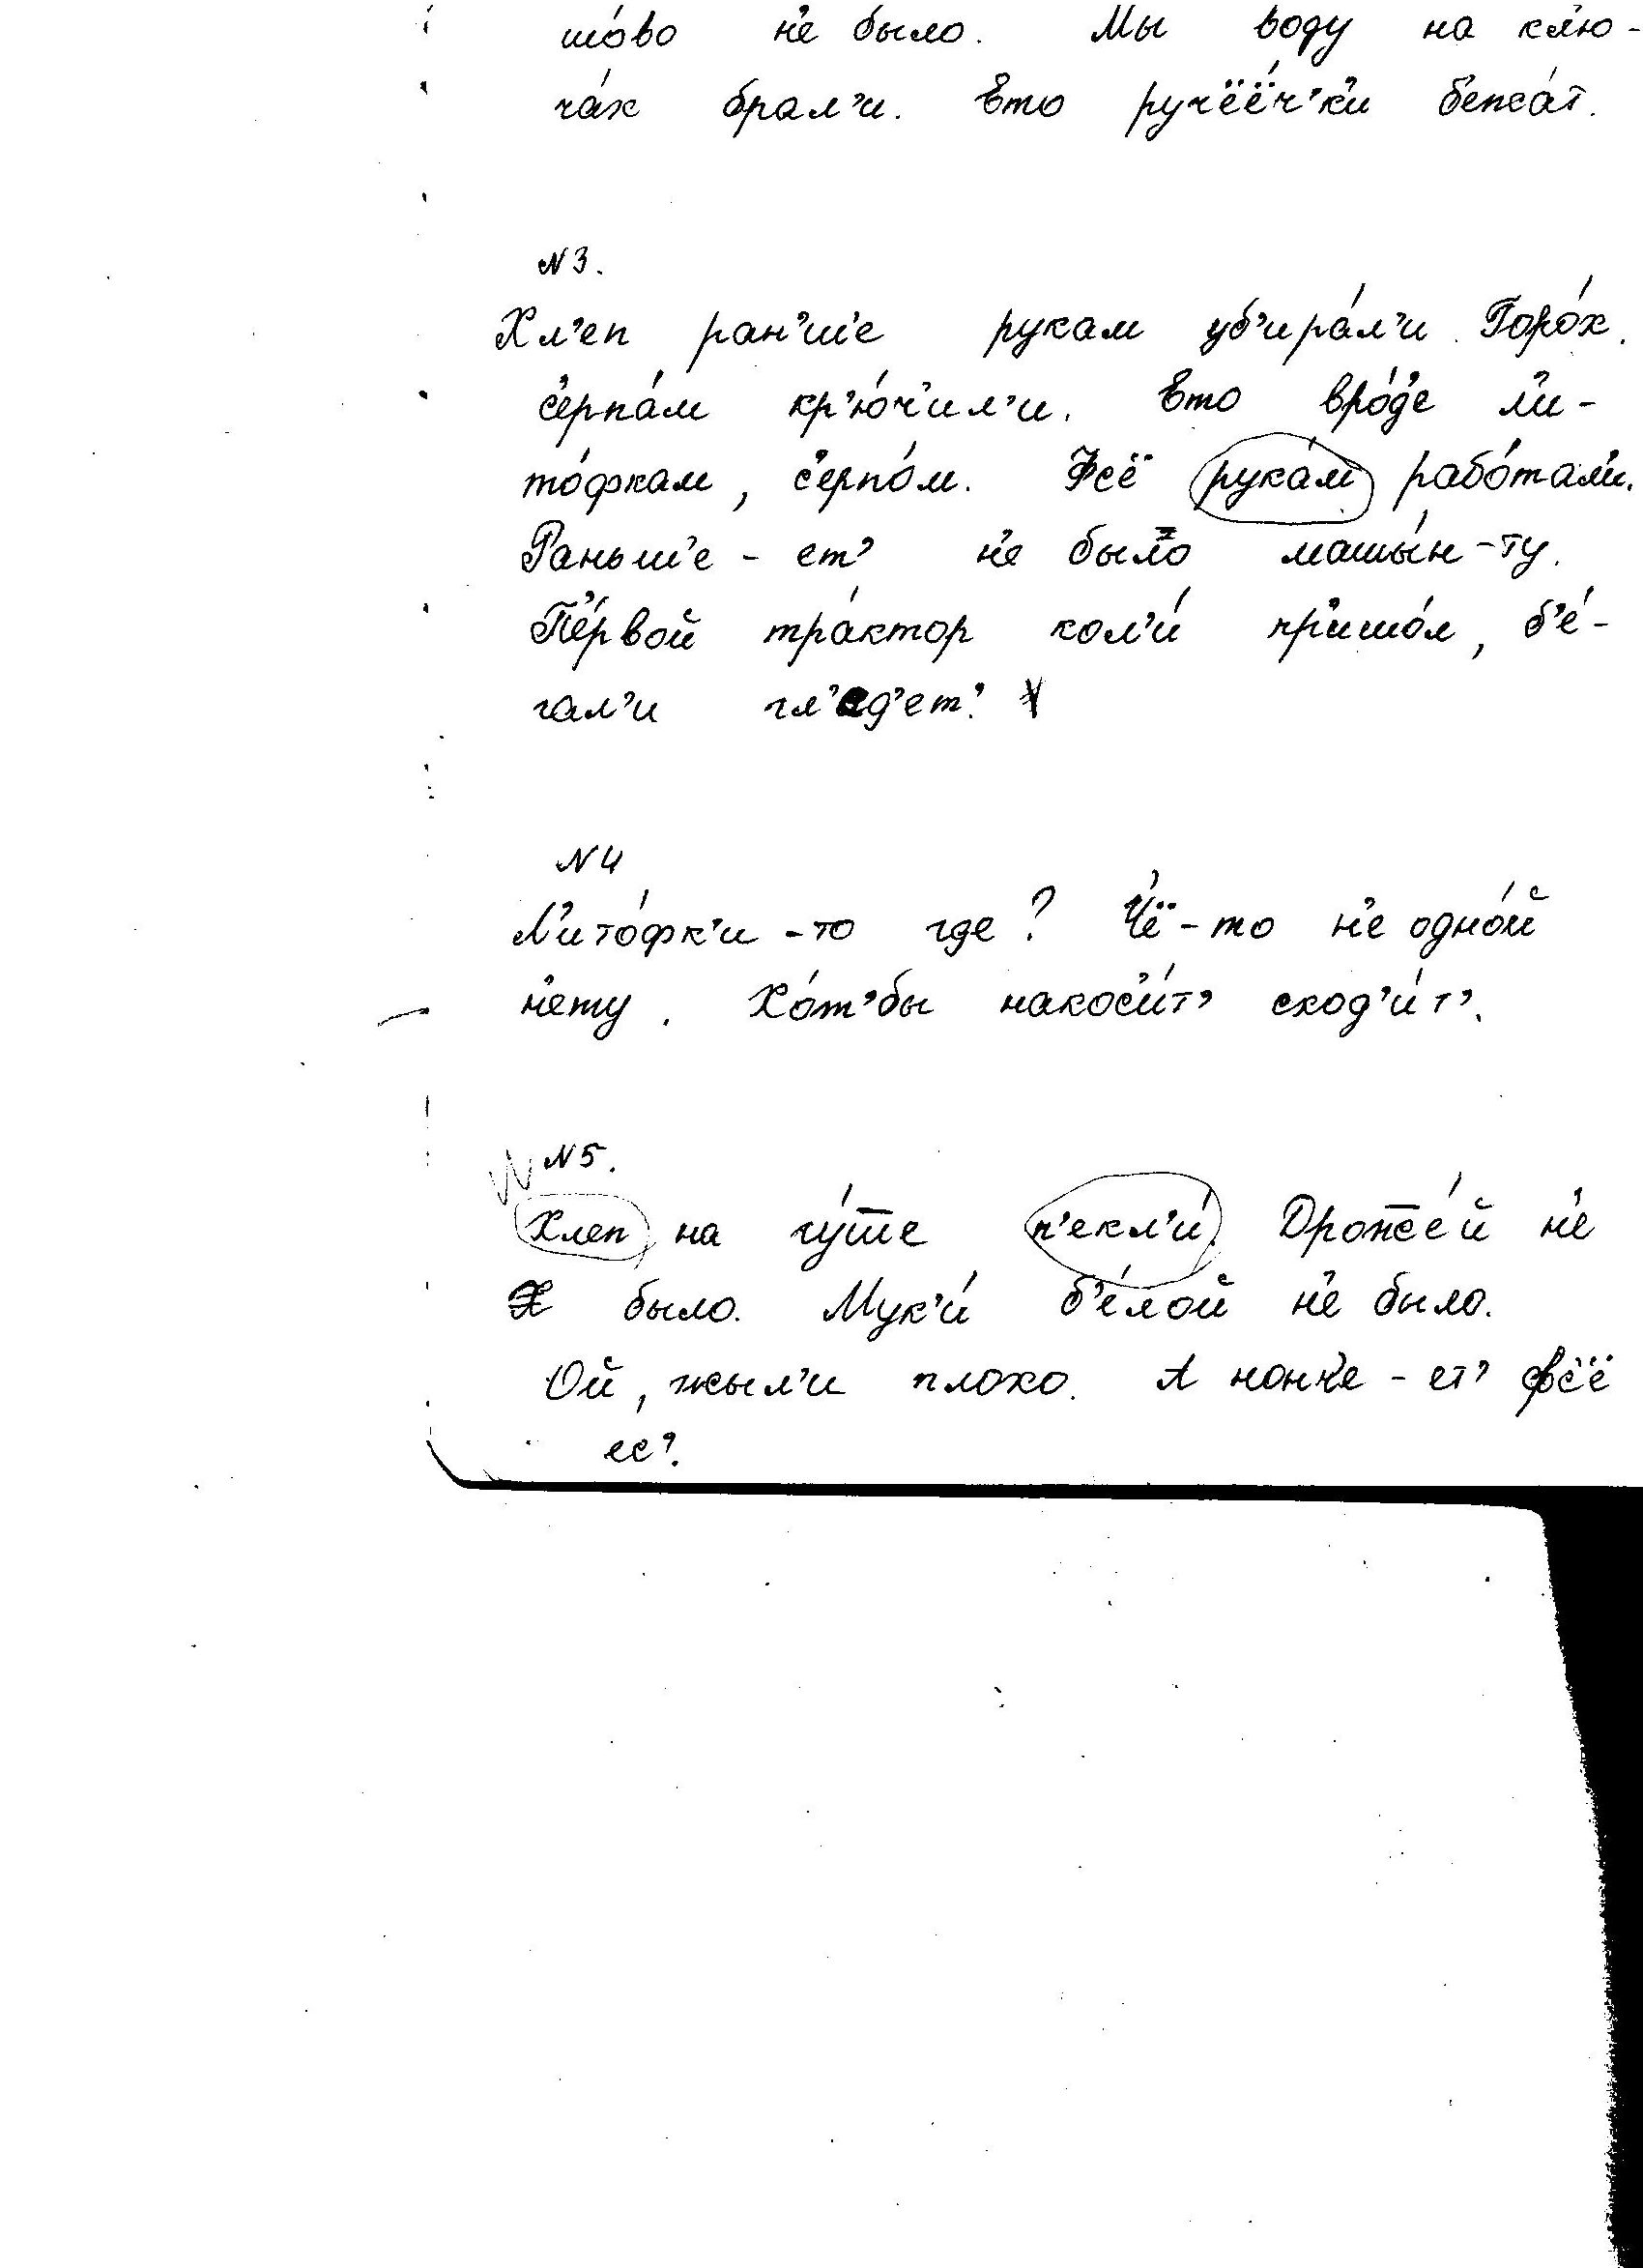 шо́во н'е было. Мы воду на кл'ю-
ча́х брал'и. Ето ручёё́ч'к'и б'ежа́т.
N 3.
Хл'еп ран'ш'е рукам уб'ира́л'и. Горо́х
с'ерпа́м кр'ю́ч'ил'и. Ето вро́д'е л'и-
то́фкам, с'ерпо́м. Фс'ё рука́м рабо́тал'и.
Раньш'е - ет' н'е было машы́н-ту.
П'е́рвой тра́ктор кол'и́ пр'ишо́л, б'е́-
гал'и гл'ед'ет'.
N 4
Л'ито́фк'и-то где? Ч'ё-то н'е одно́й
н'ету. Хо́т'бы накос'и́т' сход'и́т'.
N 5.
Хлеп на гу́ще п'екл'и́. Дрожже́й н'е
было. Мук'и́ б'е́лой н'е было.
Ой, жыл'и плохо. А нонч'е - ет' фс'ёё
ес'.